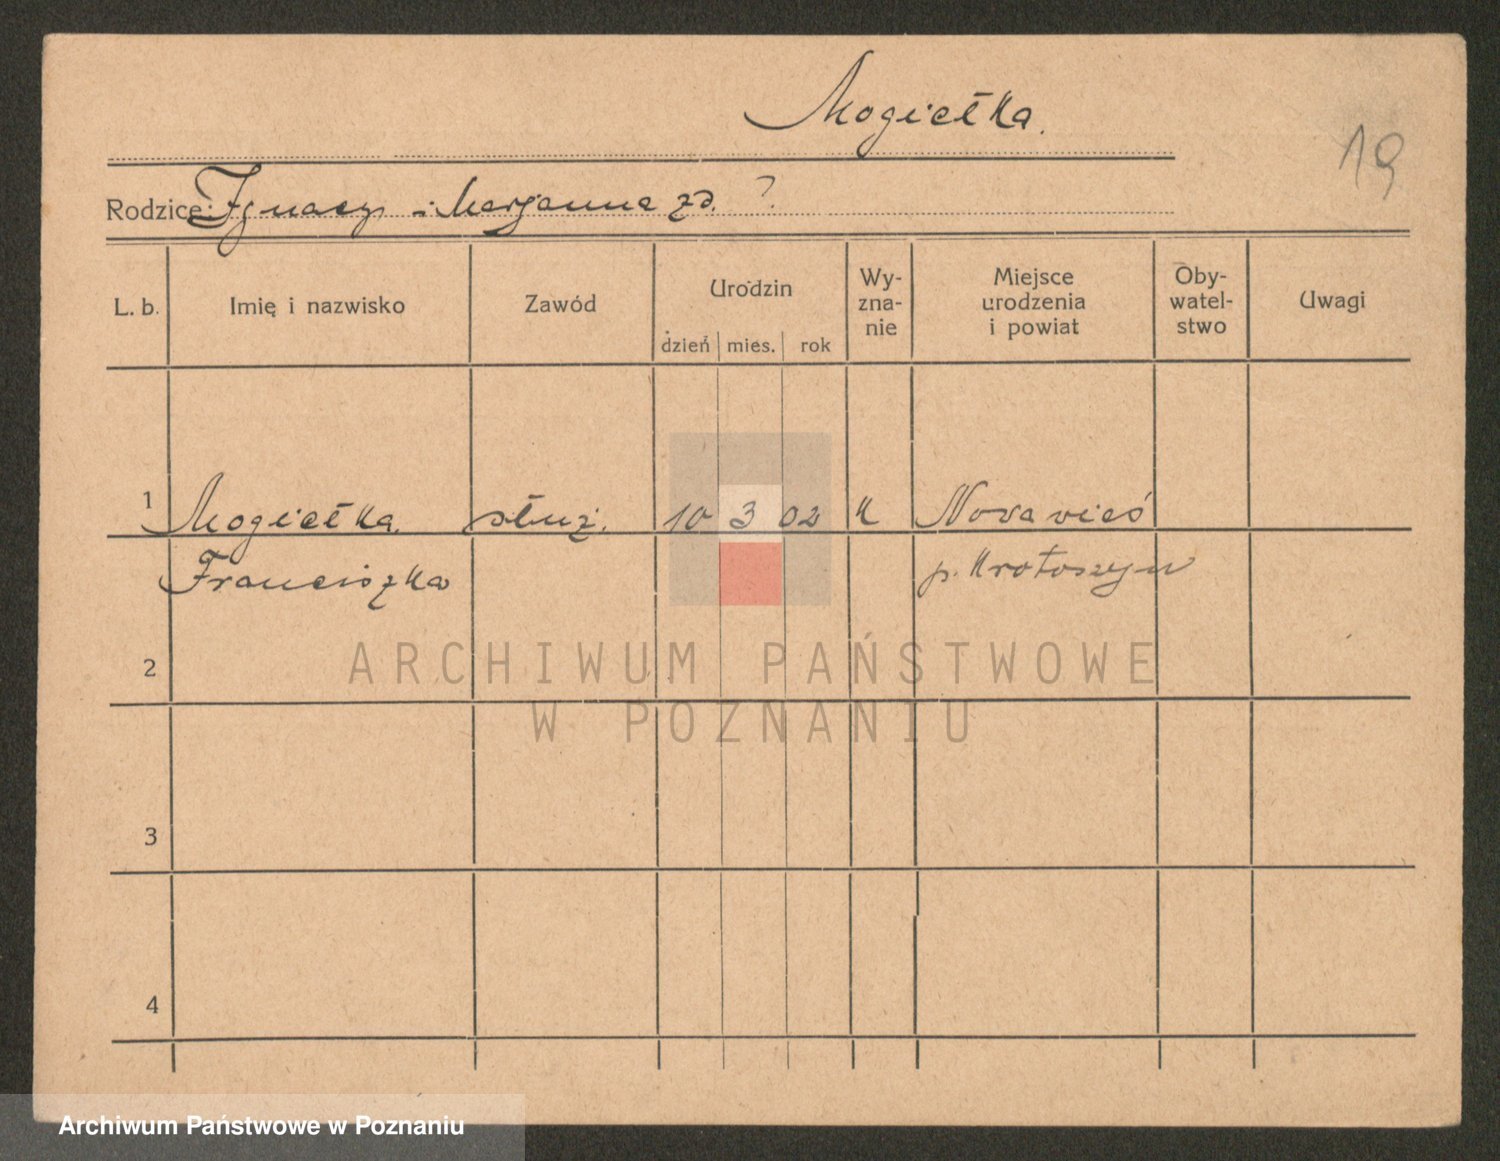 Mogiełka.
19
Rodzice: Ignacy i Marjanna zd. ?
L. b. Imię i nazwisko Zawód Urodzin Wy-zna-nie Miejsce urodzenia i powiat Oby-watel-stwo Uwagi
dzień mies. rok
1 Mogiełka służ. 10 3 02 k Nowawieś
Franciszka p. Krotoszyn
2
3
4
ARCHIWUM PAŃSTWOWE
W POZNANIU
Archiwum Państwowe w Poznaniu